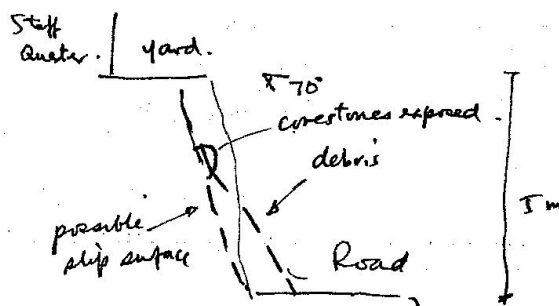 Staff
Quater.
yard.
70°
corestones exposed.
debris
5 m
possible
slip surface
Road